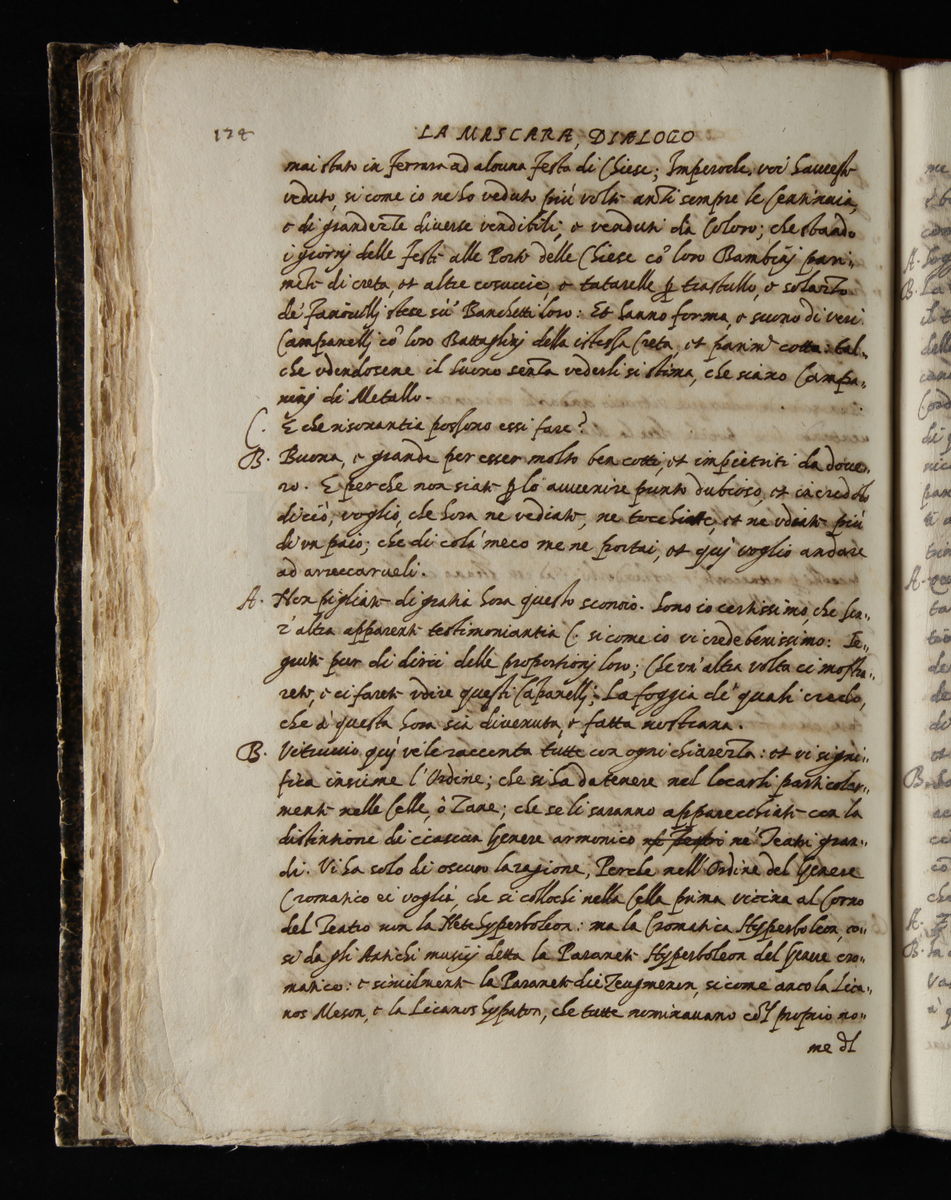 124
LA MASCARA, DIALOGO
mai stato in Ferrara ad alcuna Festa di Chiese; Imperoche, voi havereste
veduto, si come io ne ho veduto più volte anzi sempre le Centinaia,
e di grandezze diverse vendibili, e venduti da Coloro; che stando
i giorni delle Feste alle Porte delle Chiese cō loro Bambini pari-
mēte di creta, et altre cosuccie, e tatarelle p trastullo, e solazzo
de' Fanciullj stese sù' Banchetti loro: Et hanno forma, e suono di veri
Campanellj cō loro Battaglinj della istessa Creta, et parimᵗᵉ cotta: tal-
che udendosene il suono senza vederli si stima, che siano Campa-
ninj di Metallo.
C. E che risonantia possono essi fare?
B. Buona, e grande per esser molto ben cotti, et impietriti da dove-
ro. E perche non siate p lo avvenire punto dubioso, et incredolo
di ciò, voglio, che hora ne vediate, ne tocchiate, et ne udiate più
di un paio; che di colà meco me ne portai, et quj voglio andare
ad arreccarveli.
A. Non pigliate di gratia hora questo sconcio. Sono io certissimo, che sen-
z' altra apparente testimoniantia C. si come io vi crede benissimo: Se-
guite pur di dirci delle proportionj loro; Che un' altra volta ci mostra-
rete, e ci farete udire questi Cāpanellj; La foggia de' quali credo,
che à questa hora sia divenuta, e fatta nostrana.
B. Vitruvio quj ve le racconta tutte con ogni chiarezza: et vi signi-
fica insieme l'Ordine; che si ha da tenere nel locarli particolar-
mente nelle Celle, ò Zane; che se li saranno apparecchiate con la
distintione di ciascun Genere armonico ne' Teatri gran-
di. Vi ha solo di oscuro la ragione, Perche nell'Ordine del Genere
Cromatico ei voglia, che si collochi nella Cella prima vicina al Corno
del Teatro non la Nete Hyperboleon: ma la Cromatica Hyperboleon, co-
si da gli Antichi musicj detta la Paranete Hyperboleon del Genere cro-
matico: e similmente la Paranete Diezeugmenon, si come anco la Lica-
nos Meson, e la Licanos Hypaton, che tutte nominavano col proprio no-
me dl